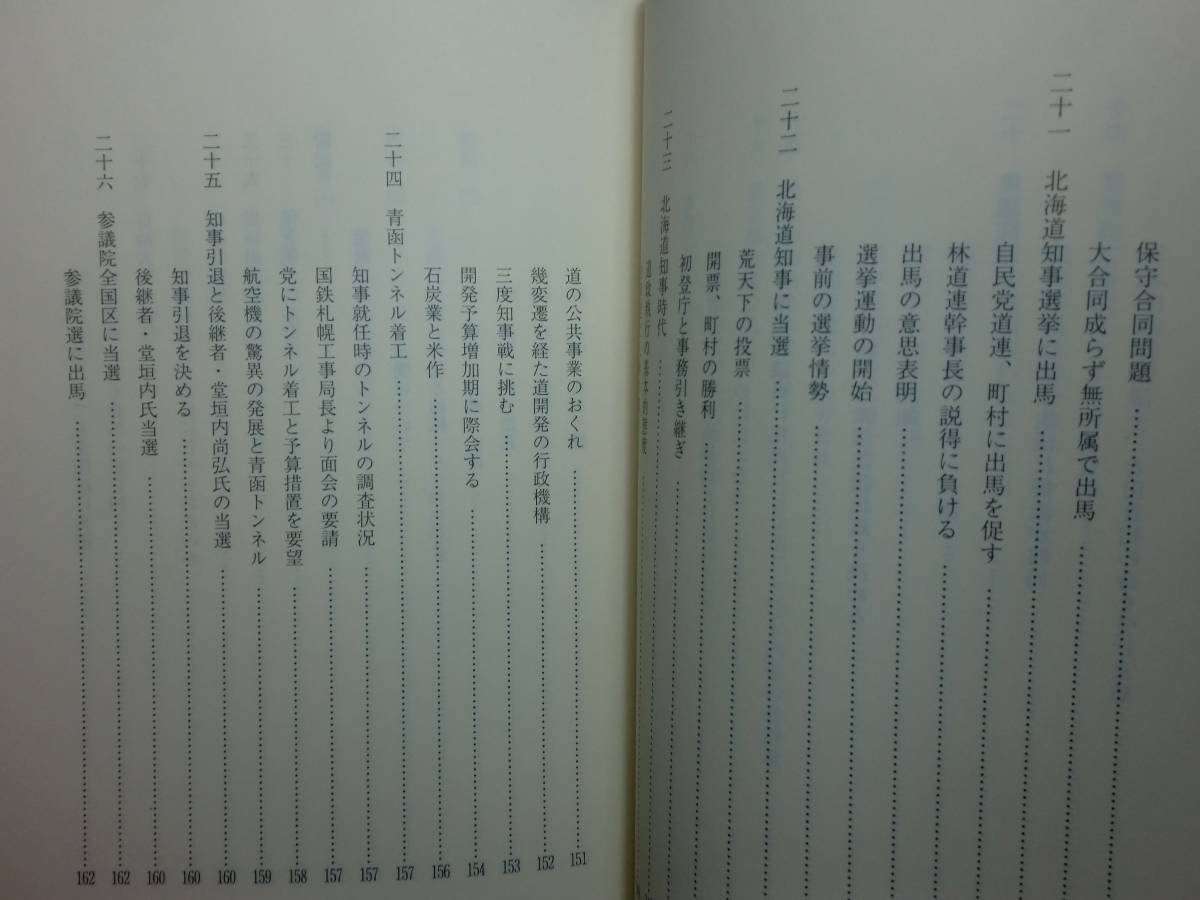 保守合同問題
大合同成らず無所属で出馬
二十一 北海道知事選挙に出馬
自民党道連、町村に出馬を促す
林道連幹事長の説得に負ける
出馬の意思表明
選挙運動の開始
事前の選挙情勢
二十二 北海道知事に当選
荒天下の投票
開票、町村の勝利
初登庁と事務引き継ぎ
二十三 北海道知事時代
道の公共事業のおくれ 151
幾変遷を経た道開発の行政機構 152
三度知事戦に挑む 153
開発予算増加期に際会する 154
石炭業と米作 156
二十四 青函トンネル着工 157
知事就任時のトンネルの調査状況 157
国鉄札幌工事局長より面会の要請 157
党にトンネル着工と予算措置を要望 158
航空機の驚異の発展と青函トンネル 159
二十五 知事引退と後継者・堂垣内尚弘氏の当選 160
知事引退を決める 160
後継者・堂垣内氏当選 160
二十六 参議院全国区に当選 162
参議院選に出馬 162